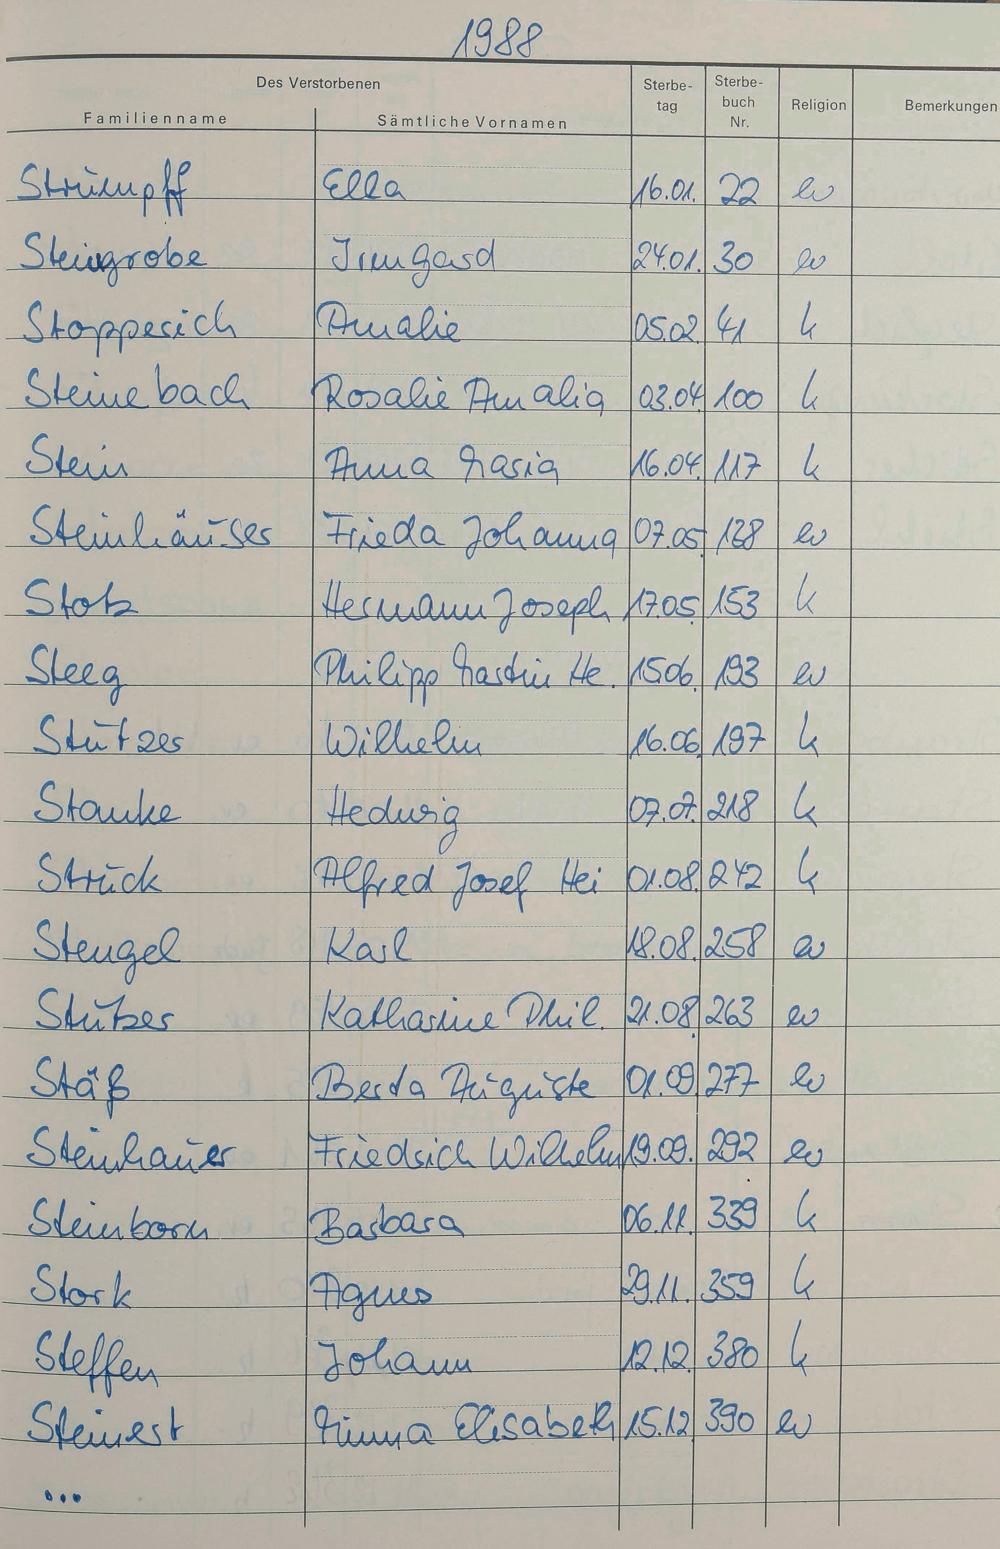 1988
Des Verstorbenen
Familienname Sämtliche Vornamen Sterbe-tag Sterbe-buch Nr. Religion Bemerkungen
Strümpff Ella 16.01. 22 ev
Steingrobe Irmgard 24.01. 30 ev
Stopperich Amalie 05.02. 41 k
Steinebach Rosalie Amalia 03.04. 100 k
Stein Anna Maria 16.04. 117 k
Steinhäuser Frieda Johanna 07.05. ev
Stotz Hermann Joseph 17.05. 153 k
Steeg Philipp Martin He. 15.06. 193 ev
Stützer Wilhelm 16.06. 197 k
Stanke Hedwig 07.07. 218 k
Strück Alfred Josef Hei 01.08. 242 k
Stengel Karl 18.08. 258 ev
Stützer Katharine Phil. 21.08. 263 ev
Stäß Berta Auguste 01.09. 277 ev
Steinhauer Friedrich Wilhelm 19.09. 292 ev
Steinborn Barbara 06.11. 339 k
Stork Agnes 29.11. 359 k
Steffen Johann 12.12. 380 k
Steinert Minna Elisabeth 15.12. 390 ev
...